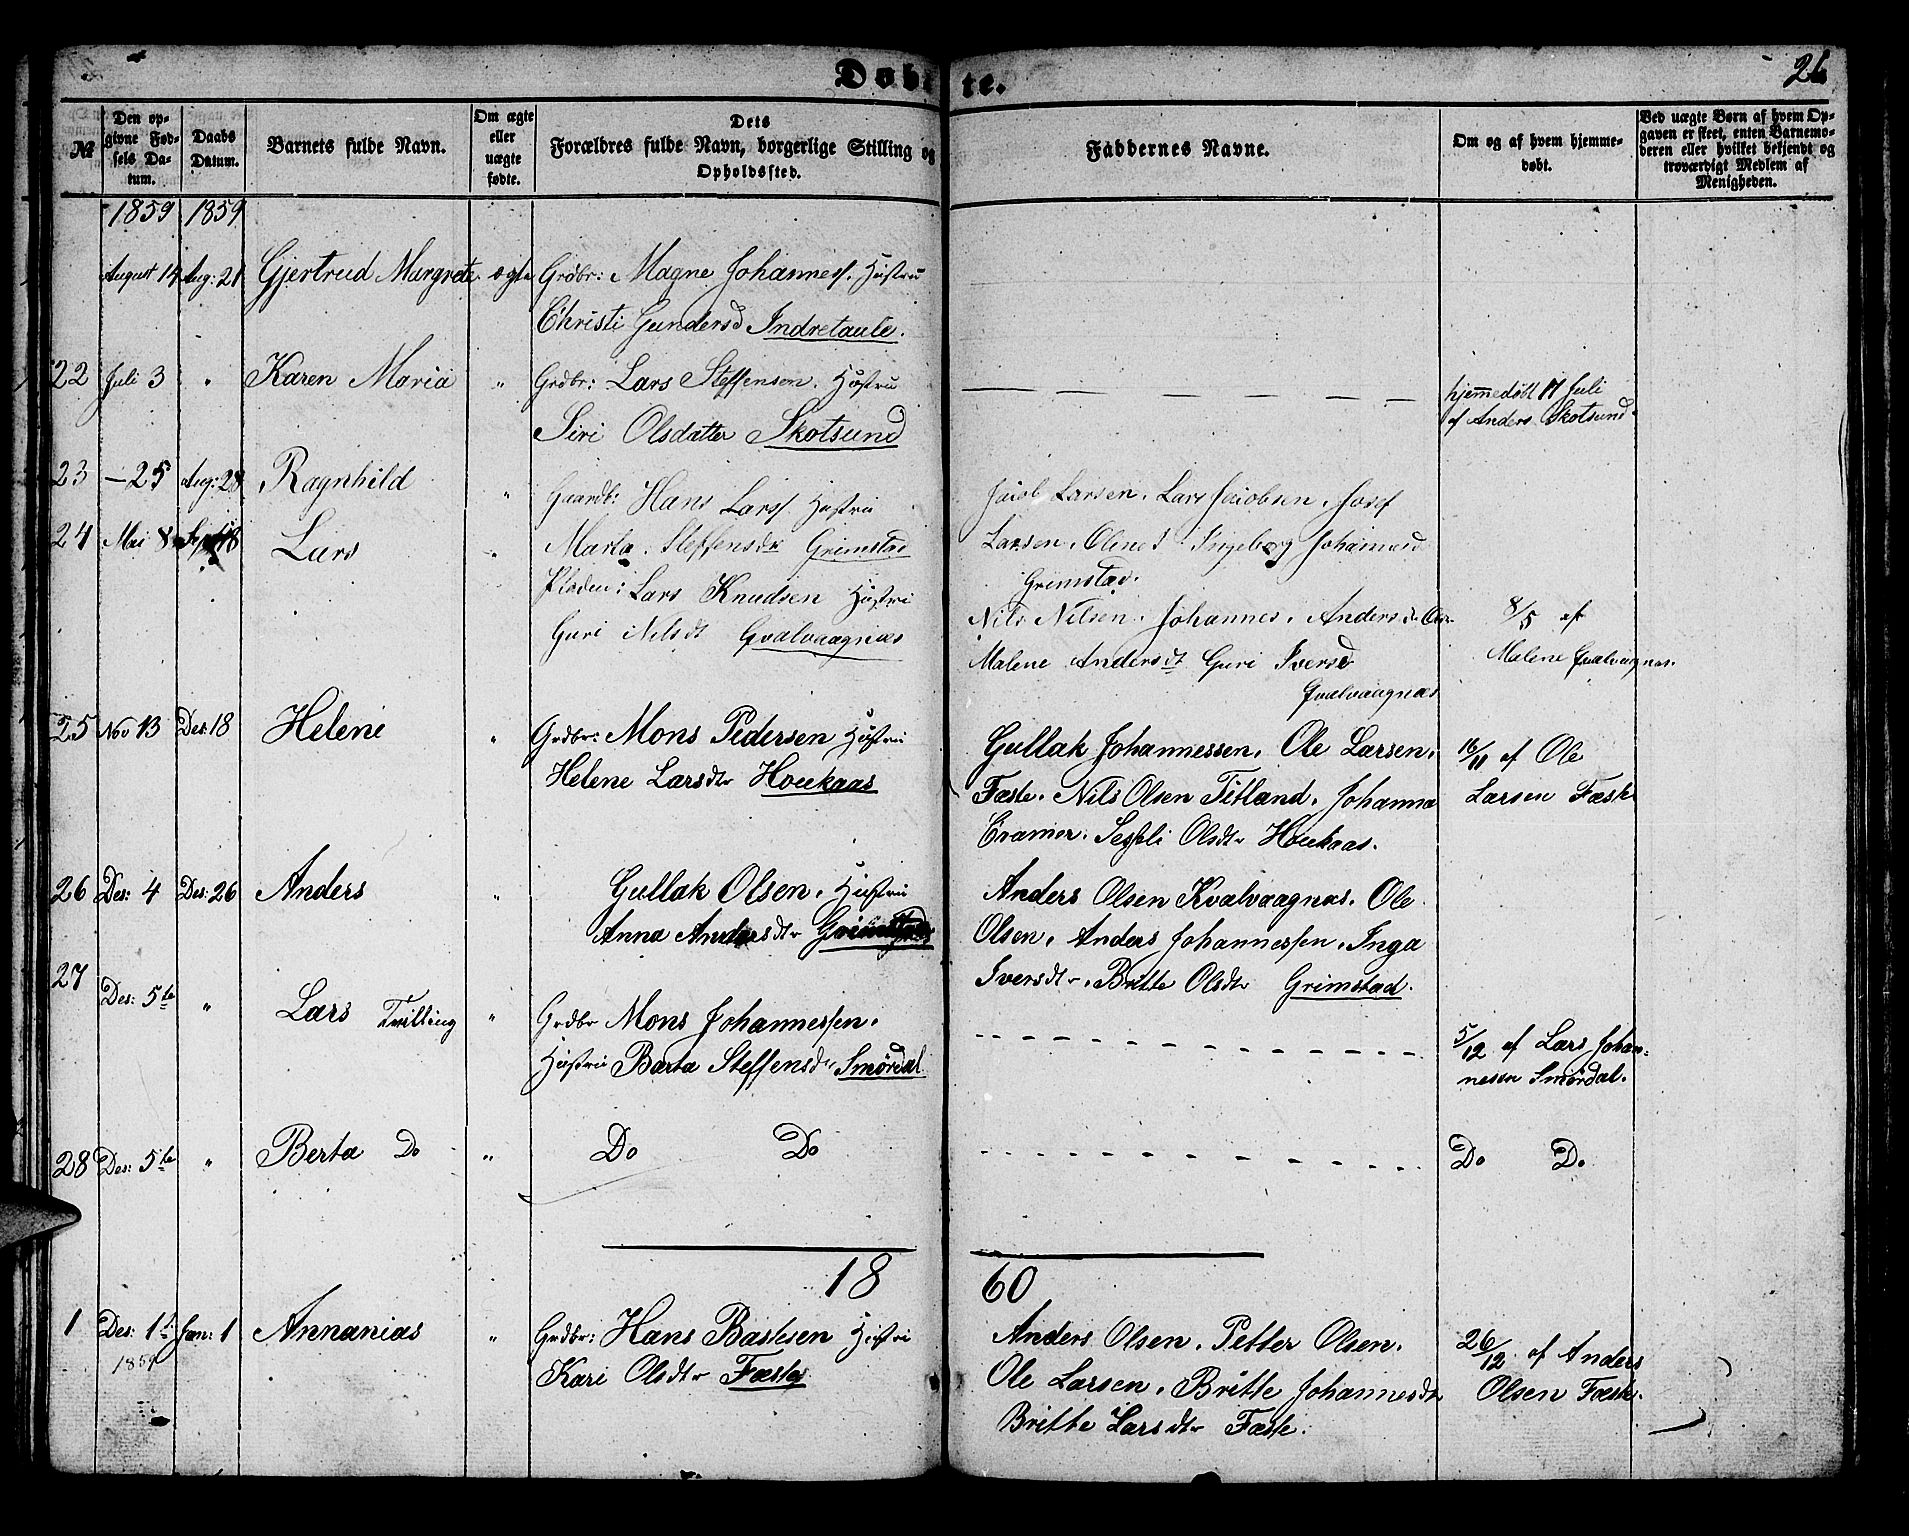 Døbte.
26
№
Den op-
givne Fød-
sels Da-
tum.
Daabs
Datum.
Barnets fulde Navn.
Om ægte
eller
uægte
fødte.
Dets
Forældres fulde Navn, borgerlige Stilling og
Opholdssted.
Faddernes Navne.
Om og af hvem hjemme-
døbt.
Ved uægte Børn af hvem Op-
gaven er skeet, enten Barnemo-
deren eller hvilket bekjendt og
troværdigt Medlem af
Menigheden.
1859 1859
August 14 Aug: 21 Gjertrud Margrete ægte Grdbr: Magne Johanness. Hustru
Christi Gundersd Indretaule.
22 Juli 3 " Karen Maria " Grdbr: Lars Steffensen. Hustru
Siri Olsdatter Skotsund
hjemmedøbt 17 Juli
af Anders Skotsund
23 – 25 Aug: 28 Ragnhild " Gaardb: Hans Larss. Hustru
Marta Steffensdr Grimstad
Jacob Larsen. Lars Jacobsen. Josef
Larsen. Olene Ingeborg Johannesd
Grimstad.
24 Mai 8 Sept 18 Lars " Pladsm: Lars Knudsen Hustru
Guri Nilsdt Qvalvaagnæs
Nils Nilsen. Johannes. Anders
Malene Andersdt Guri Iversd
Qvalvaagnæs
8/5 af
Malene Qvalvaagnæs
25 Nov 13 Des: 18 Helene " Grdbr: Mons Pedersen Hustru
Helene Larsdtr Houkaas
Gullak Johannessen. Ole Larsen.
Fæste. Nils Olsen Titland. Johanna
Cramer. Sesseli Olsdtr Houkaas.
16/11 af Ole
Larsen Fæste
26 Des: 4 Des: 26 Anders " Gullak Olsen. Hustru
Anna Andersdtr Grimstad
Anders Olsen Kvalvaagnæs. Ole
Olsen. Anders Johannessen. Inga
Iversdtr. Britte Olsdtr Grimstad.
27 Des: 5te " Lars Tvilling " Grdbr Mons Johannessen.
Hustru Barta Steffensdtr Smørdal
5/12 af Lars Johan-
nesen Smørdal.
28 Des: 5te " Berta Do " Do Do
Do Do
18 60
1 Des: 1st Jan: 1 Annanias " Grdbr: Hans Bastesen Hustru
1859
Kari Olsdtr Fæste
Anders Olsen. Petter Olsen.
Ole Larsen. Britte Johannesdtr
Britte Larsdtr Fæste.
26/12 af Anders
Olsen Fæste.